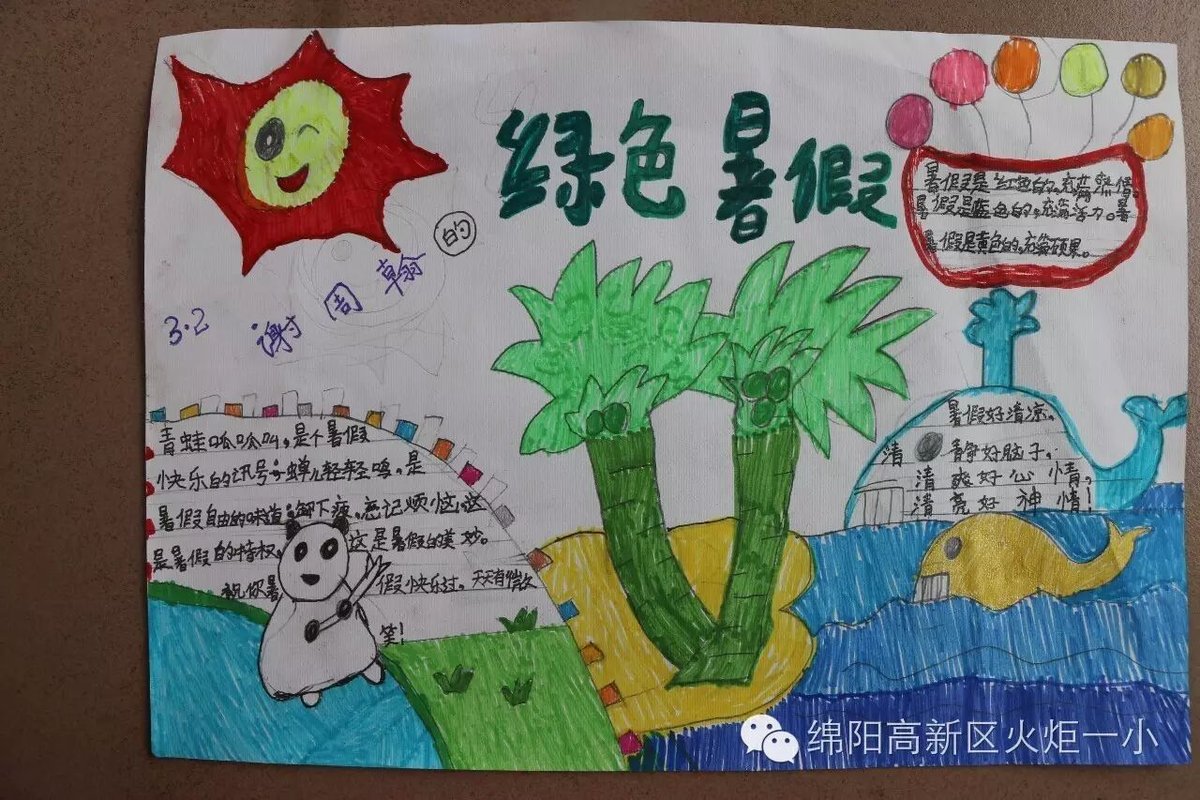 绿色暑假
3.2 谢周翰的
暑假是红色的，充满热情。
暑假是蓝色的，充满活力。暑
假是黄色的，充满硕果。
青蛙呱呱叫，是个暑假
快乐的讯号；蝉儿轻轻鸣，是
暑假自由的味道；卸下疲，忘记烦恼，这
是暑假的特权，这是暑假的美妙。
祝你暑假快乐过，天天有微
笑！
暑假好清凉，
清静好脑子，
清爽好心情，
清亮好神情！
绵阳高新区火炬一小